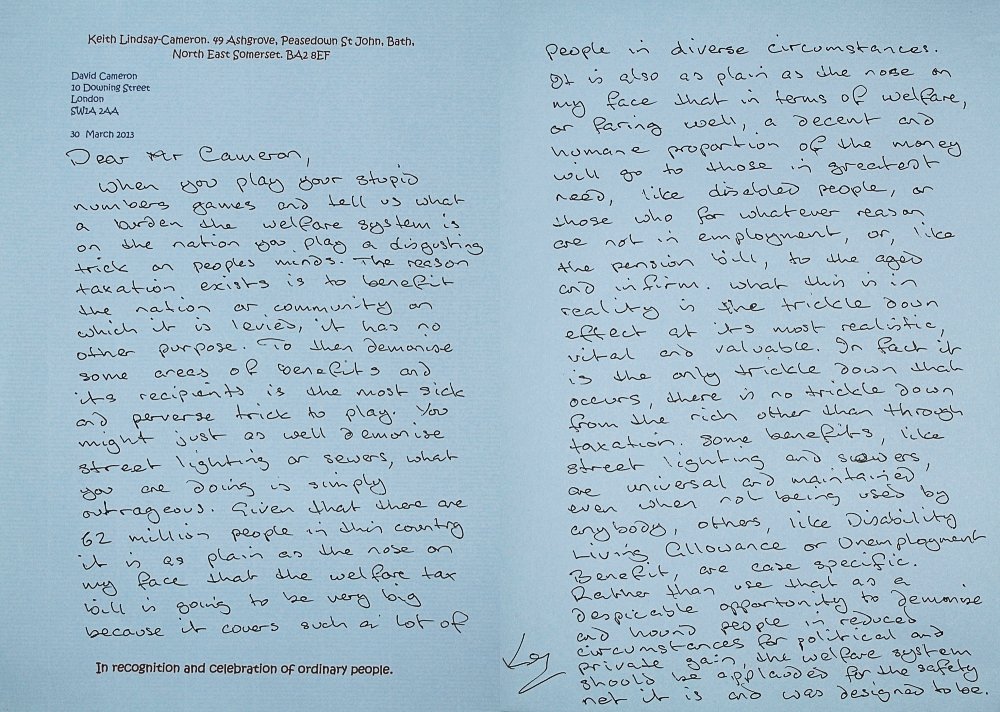 Keith Lindsay-Cameron. 49 Ashgrove, Peasedown St John, Bath,
North East Somerset. BA2 8EF
David Cameron
10 Downing Street
London
SW1A 2AA
30 March 2013
Dear Mr Cameron,
When you play your stupid
numbers games and tell us what
a burden the welfare system is
on the nation you play a disgusting
trick on peoples minds. The reason
taxation exists is to benefit
the nation or community on
which it is levied, it has no
other purpose. To then demonise
some areas of benefits and
its recipients is the most sick
and perverse trick to play. You
might just as well demonise
street lighting or sewers, what
you are doing is simply
outrageous. Given that there are
62 million people in this country
it is as plain as the nose on
my face that the welfare tax
bill is going to be very big
because it covers such a lot of
In recognition and celebration of ordinary people.
people in diverse circumstances.
It is also as plain as the nose on
my face that in terms of welfare,
or faring well, a decent and
humane proportion of the money
will go to those in greatest
need, like disabled people, or
those who for whatever reason
are not in employment, or, like
the pension bill, to the aged
and infirm. What this is in
reality is the trickle down
effect at its most realistic,
vital and valuable. In fact it
is the only trickle down that
occurs, there is no trickle down
from the rich other than through
taxation. Some benefits, like
street lighting and sewers,
are universal and maintained
even when not being used by
anybody, others, like Disability
Living Allowance or Unemployment
Benefit, are case specific.
Rather than use that as a
despicable opportunity to demonise
and hound people in reduced
circumstances for political and
private gain, the welfare system
should be applauded for the safety
net it is and was designed to be.